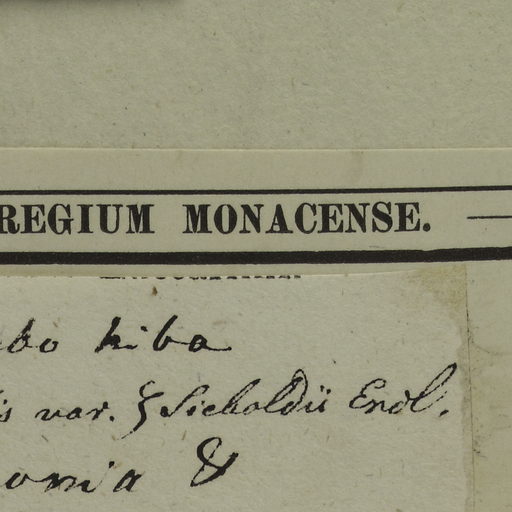 REGIUM MONACENSE.
bo hiba
is var. ζ Sieboldii Endl.
onia &